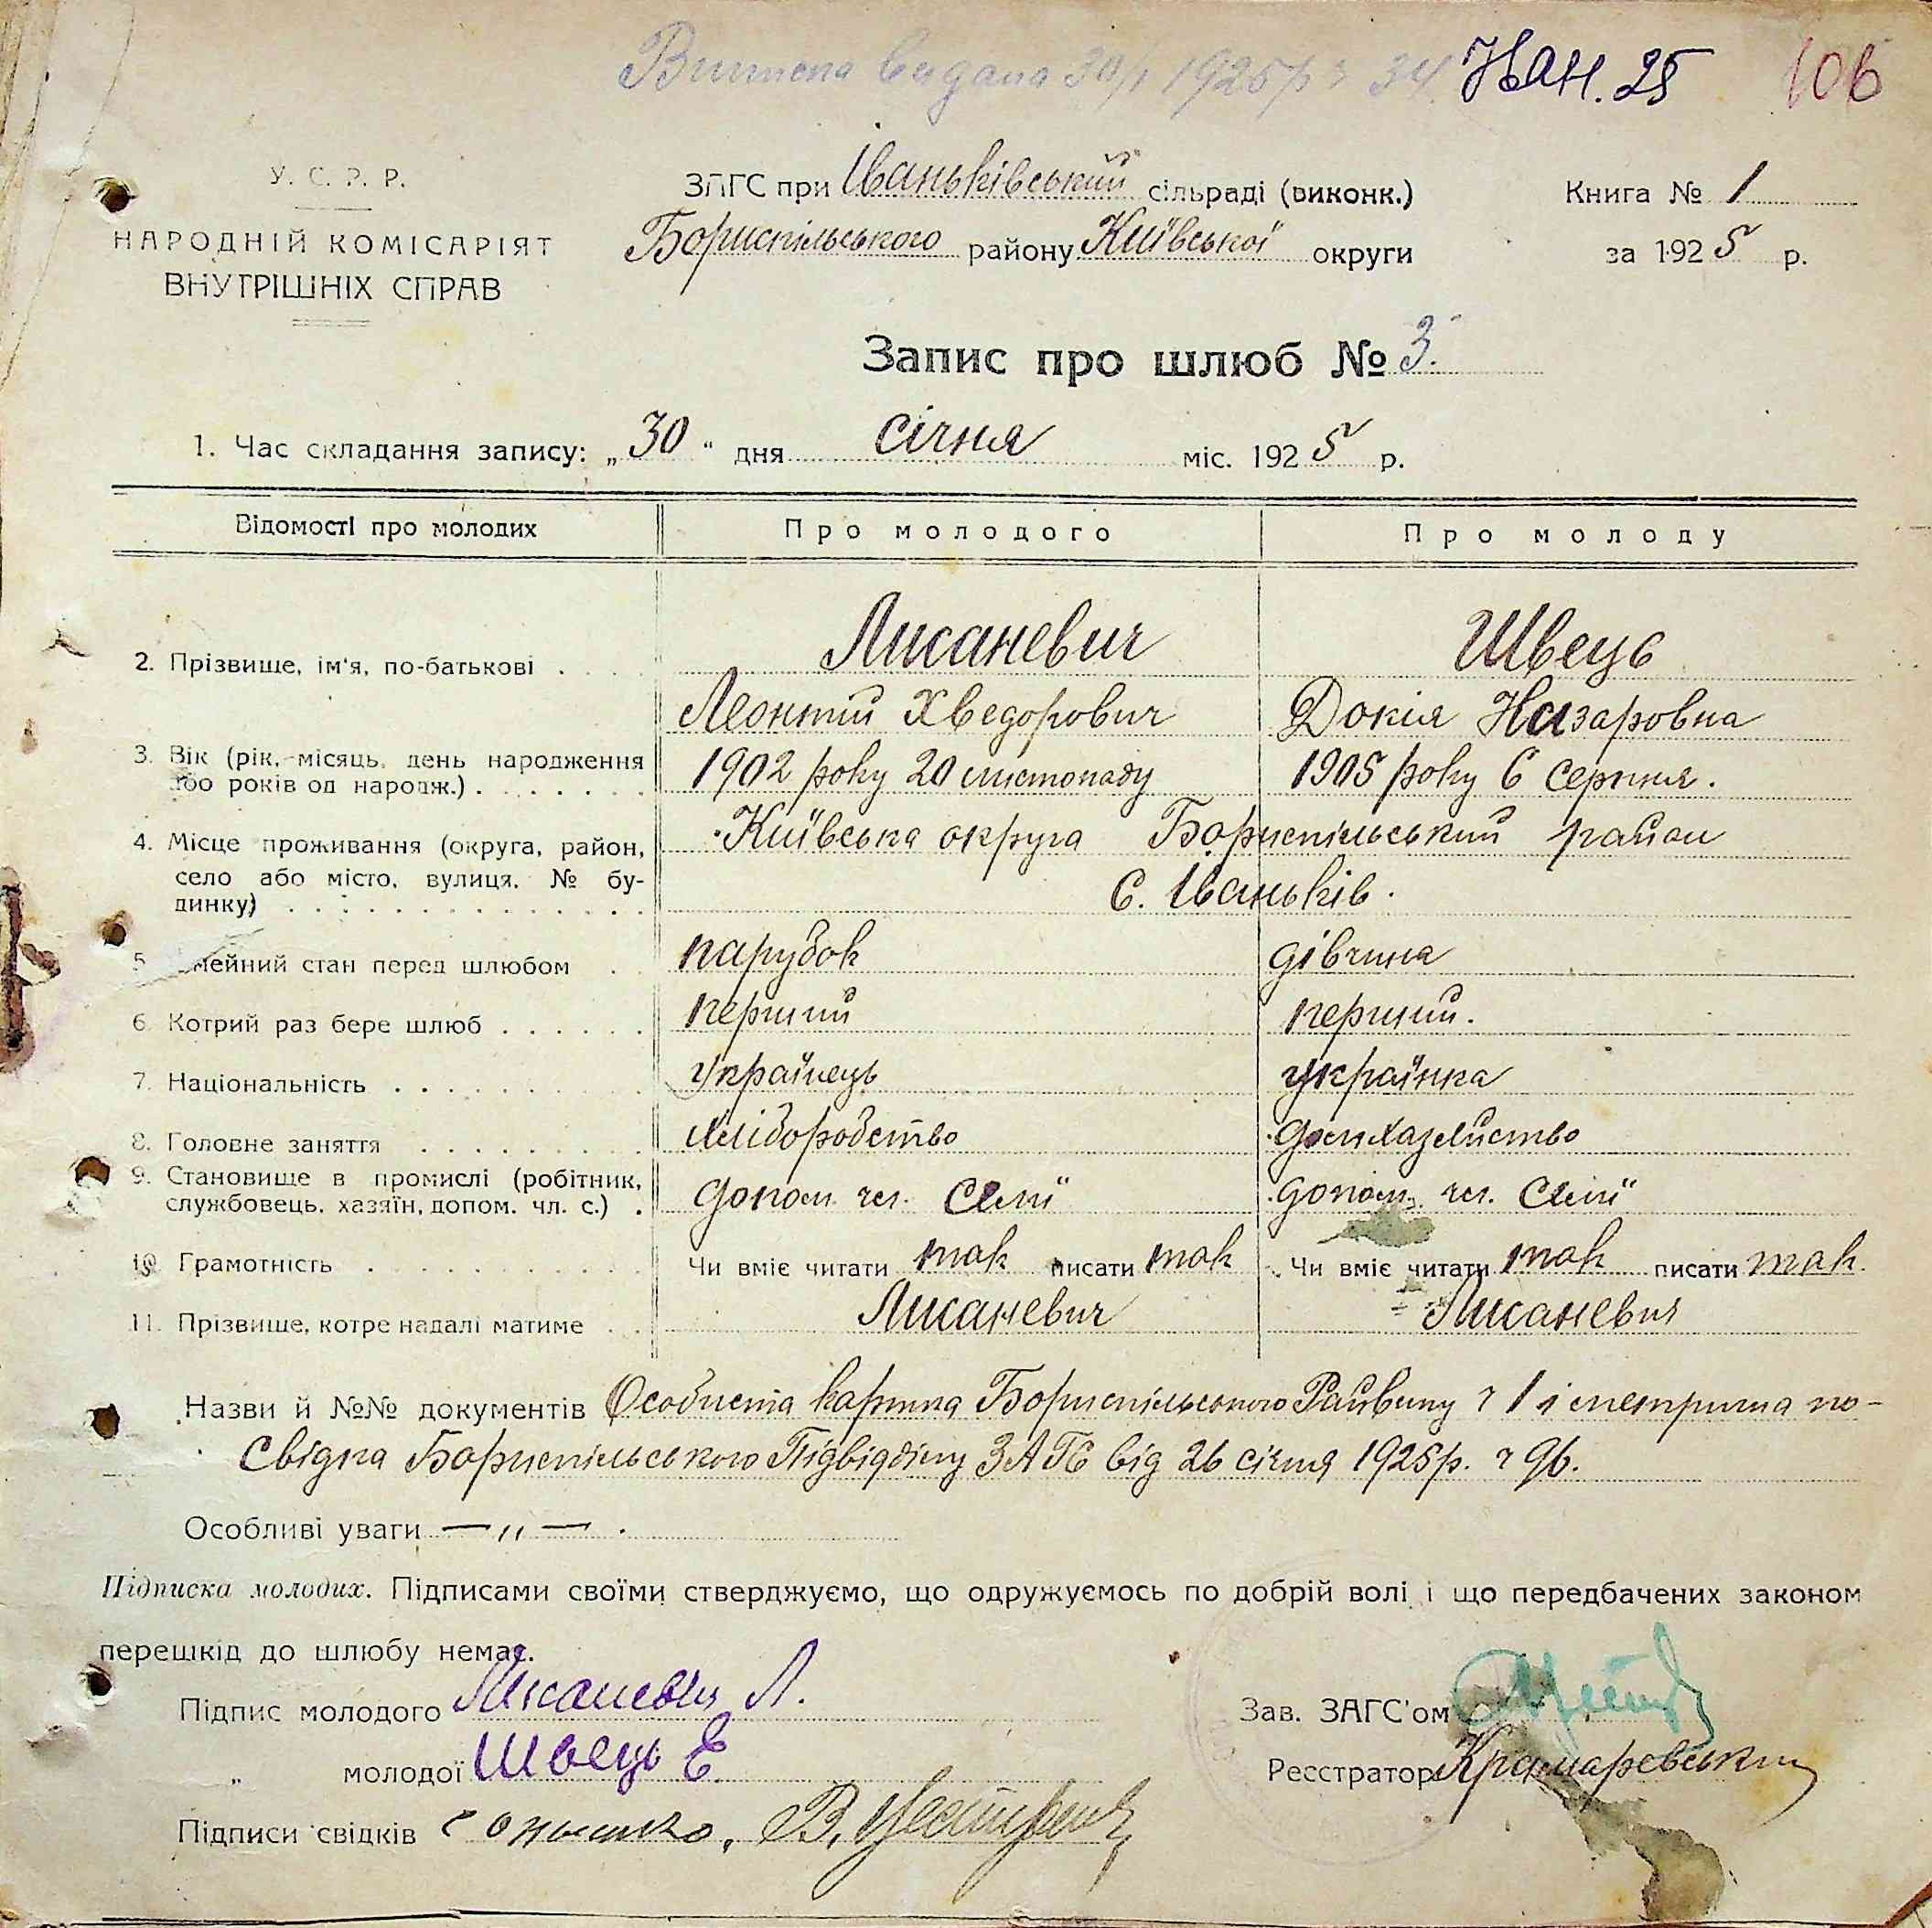 Виписка видана 30/I 1925 р ч 34. Нан. 25 106
У. С. Р. Р.
НАРОДНІЙ КОМІСАРІЯТ
ВНУТРІШНІХ СПРАВ
ЗАГС при Іваньківський сільраді (виконк.)
Бориспільського району Київської округи
Книга № 1
за 1925 р.
Запис про шлюб № 3.
1. Час складання запису: „30" дня січня міс. 1925 р.
Відомості про молодих Про молодого Про молоду
2. Прізвище, ім'я, по-батькові . Лисаневич Швець
Леонтий Хведорович Докія Назаровна
3. Вік (рік, місяць, день народження
або років од народж.) . . . . . . . 1902 року 20 листопаду 1905 року 6 серпня.
4. Місце проживання (округа, район, Київська округа Бориспільський район
село або місто, вулиця, № бу-
динку) . . . . . . . . . . . . . . С. Іваньків.
5. мейний стан перед шлюбом . парубок дівчина
6. Котрий раз бере шлюб . . . . . . перший перший.
7. Національність . . . . . . Українець українка
8. Головне заняття . . . . . . . . хліборобство домхазяйство
9. Становище в промислі (робітник,
службовець, хазяїн, допом. чл. с.) . допом. чл. Семї допом. чл. Семї
10. Грамотність . . . . . . . Чи вміє читати так писати так Чи вміє читати так писати так.
11. Прізвище, котре надалі матиме . . Лисаневич Лисаневич
Назви й №№ документів Особиста картка Бориспільського Райвику ч 1 і по-
свідка Бориспільського Підвідділу ЗАГС від 26 січня 1925 р. ч 96.
Особливі уваги — „ — .
Підписка молодих. Підписами своїми стверджуємо, що одружуємось по добрій волі і що передбачених законом
перешкід до шлюбу немає.
Підпис молодого Лисаневич Л.
„ молодої Швець Е
Підписи свідків
Зав. ЗАГС'ом
Реєстратор Крамаревський